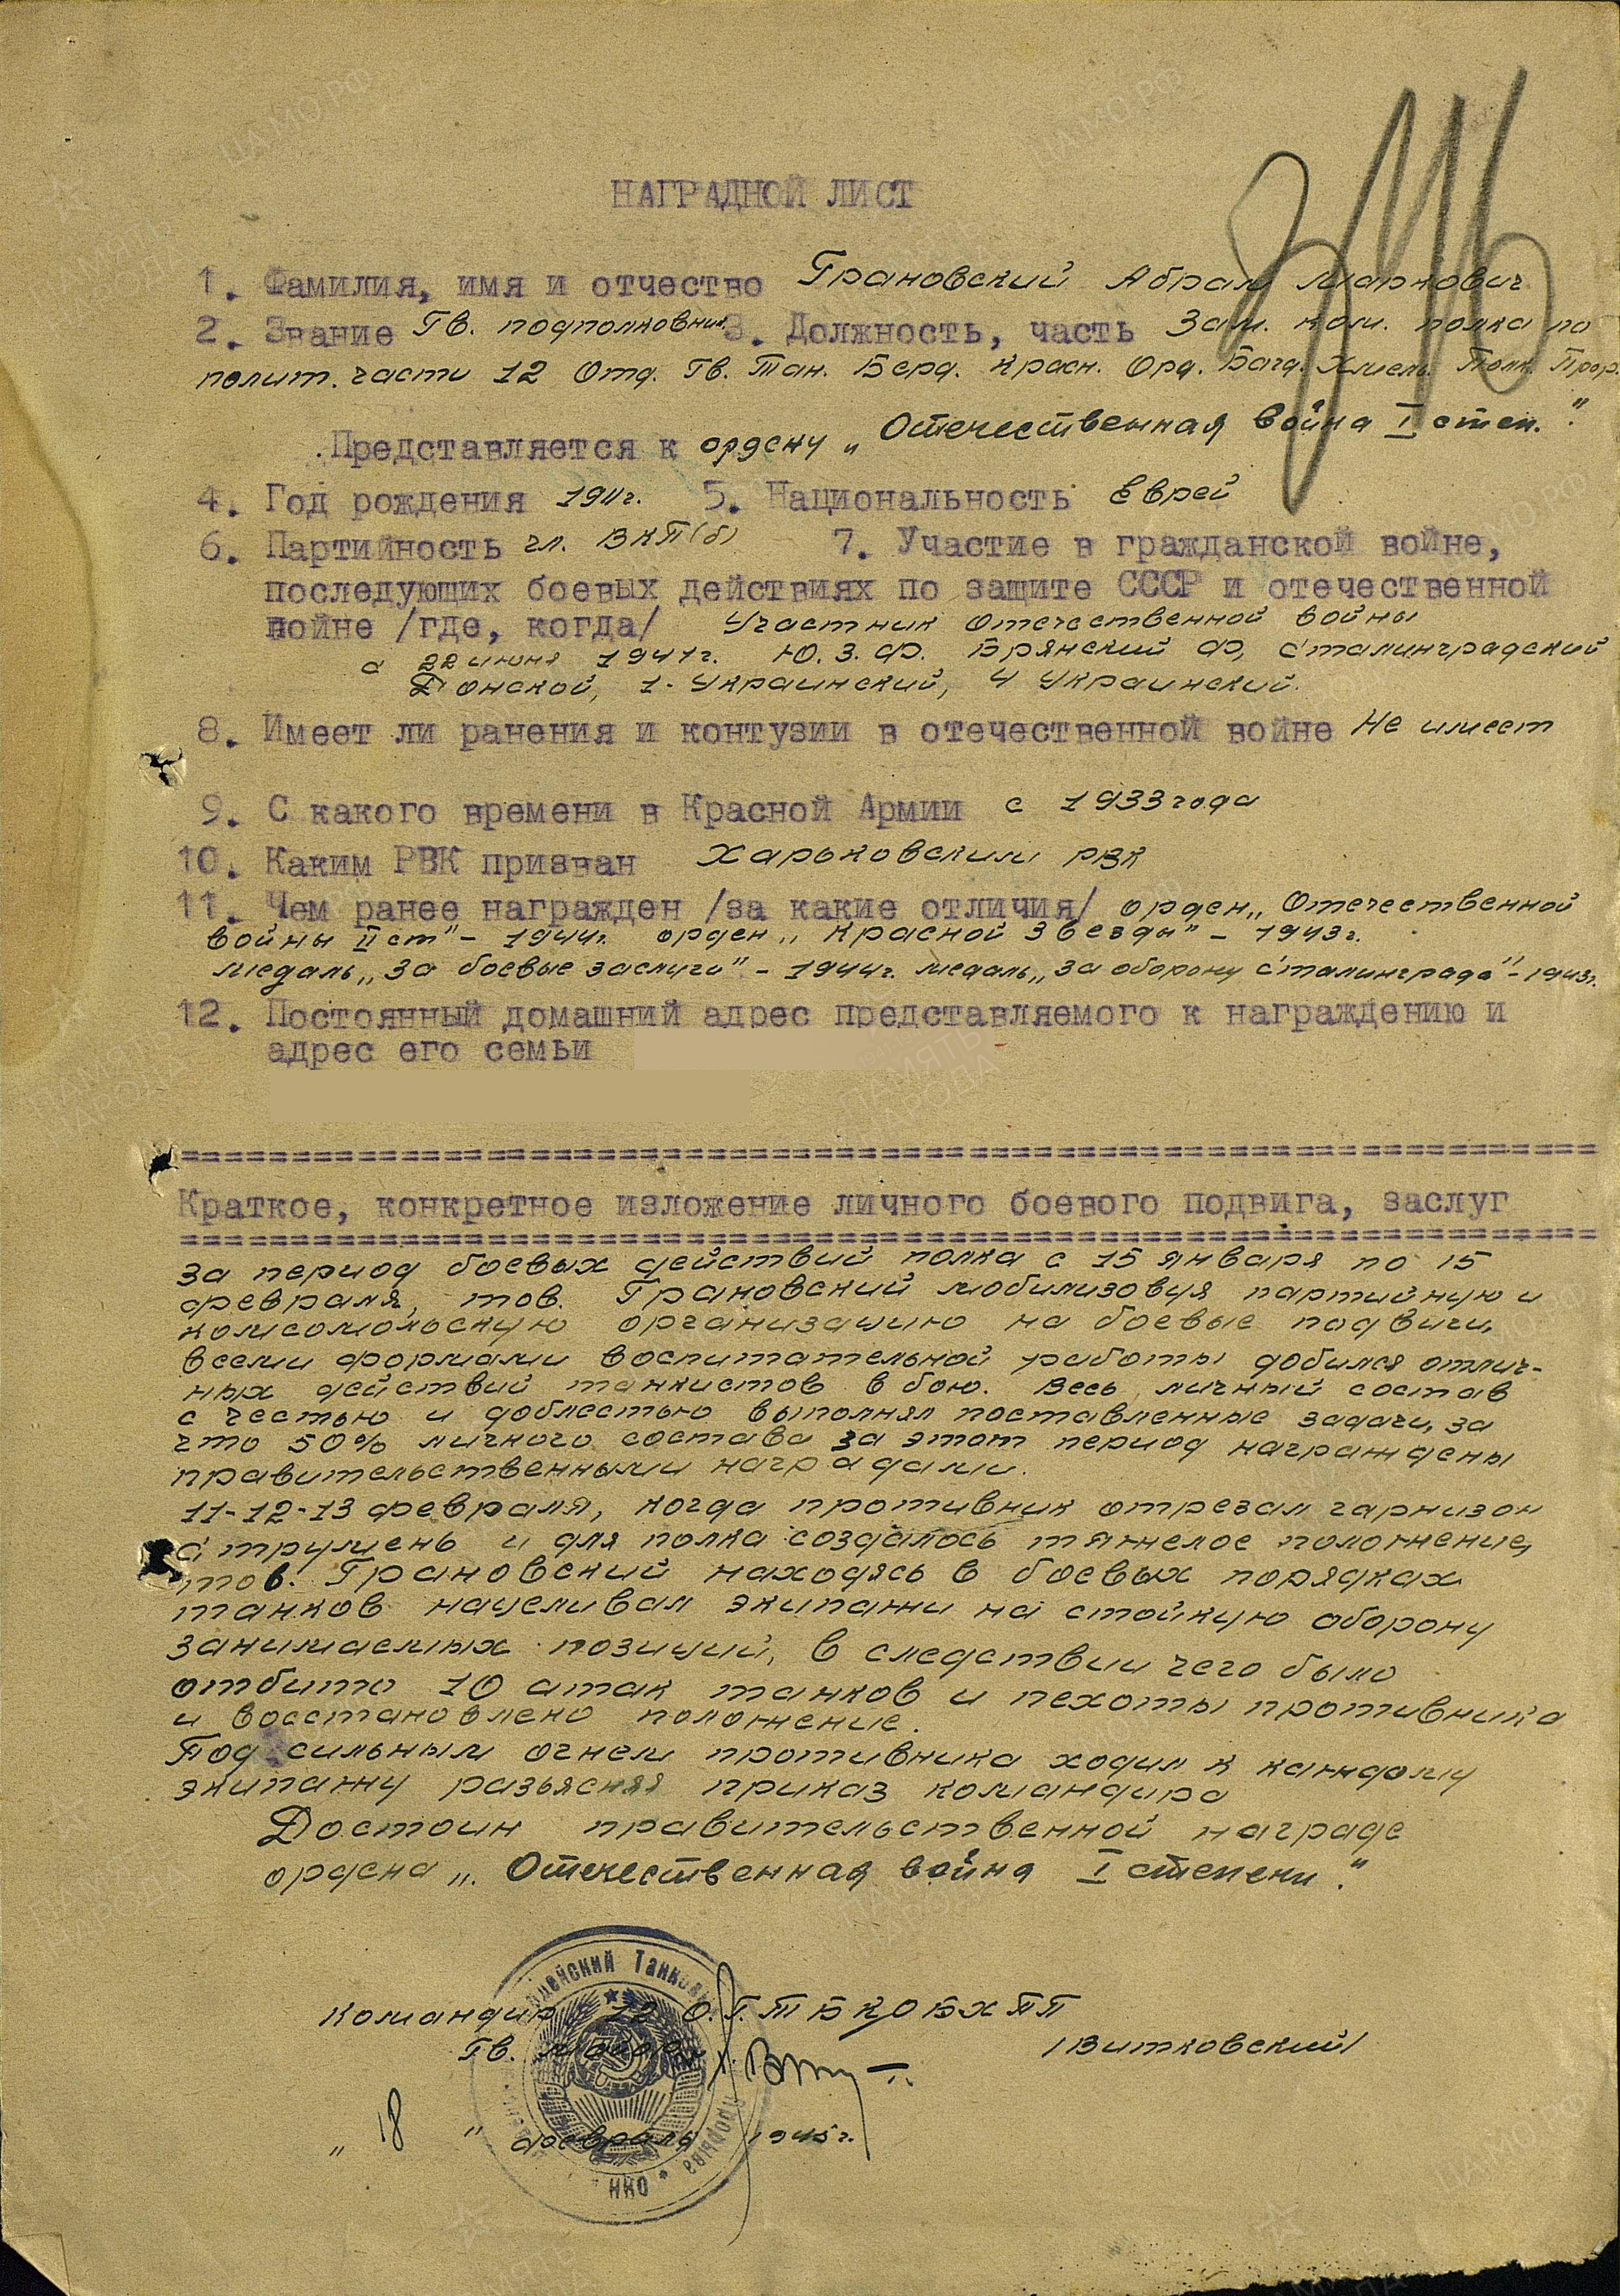 НАГРАДНОЙ ЛИСТ
1. Фамилия, имя и отчество Грановский Абрам Маркович
2. Звание Гв. подполковник 3. Должность, часть Зам. ком. полка по
полит. части 12 Отд. Гв. Тан. Берд. Красн. Орд. Богд. Хмель. Полк. Прор.
Представляется к ордену „Отечественная война I степ."
4. Год рождения 1911г. 5. Национальность Еврей
6. Партийность чл. ВКП(б) 7. Участие в гражданской войне,
последующих боевых действиях по защите СССР и отечественной
войне /где, когда/ Участник Отечественной войны
с 22 июня 1941г. Ю.З.Ф. Брянский Ф, Сталинградский
Донской, 1-Украинский, 4 Украинский.
8. Имеет ли ранения и контузии в отечественной войне Не имеет
9. С какого времени в Красной Армии с 1933 года
10. Каким РВК призван Харьковским РВК
11. Чем ранее награжден /за какие отличия/ орден „Отечественной
войны II ст" - 1944г. орден „Красной Звезды" - 1943г.
медаль „За боевые заслуги" - 1944г. медаль „За оборону Сталинграда" - 1943г.
12. Постоянный домашний адрес представляемого к награждению и
адрес его семьи
Краткое, конкретное изложение личного боевого подвига, заслуг
За период боевых действий полка с 15 января по 15
февраля, тов. Грановский мобилизовуя партийную и
комсомольскую организацию на боевые подвиги,
всеми формами воспитательной работы добился отлич-
ных действий танкистов в бою. Весь личный состав
с честью и доблестью выполнял поставленные задачи, за
что 50% личного состава за этот период награждены
правительственными наградами.
11-12-13 февраля, когда противник отрезал гарнизон
Струмень и для полка создалось тяжелое положение,
тов. Грановский находясь в боевых порядках
танков нацеливал экипажи на стойкую оборону
занимаемых позиций, в следствии чего было
отбито 10 атак танков и пехоты противника
и восстановлено положение.
Под сильным огнем противника ходил к каждому
экипажу разъясняя приказ командира
Достоин правительственной награде
ордена „Отечественная война I степени".
Командир 12 О.Г.Т Б К О Б Х П П
Гв. майор /Витковский/
„18" февраля 1945г.
Танковый
Прорыва
НКО